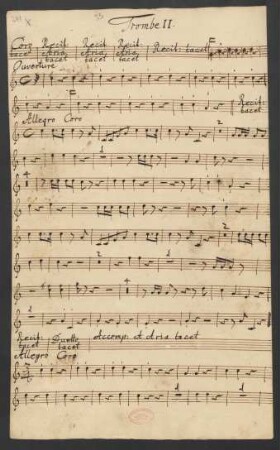 Trombe II
Coro Recit: Recit: Recit: Recit: tacet
tacet Aria Aria Aria
tacet tacet tacet
Ouverture
Recit:
tacet
Allegro Coro
2
2
2
Recit: Duetto Accomp: et Aria tacet
tacet tacet
Allegro Coro